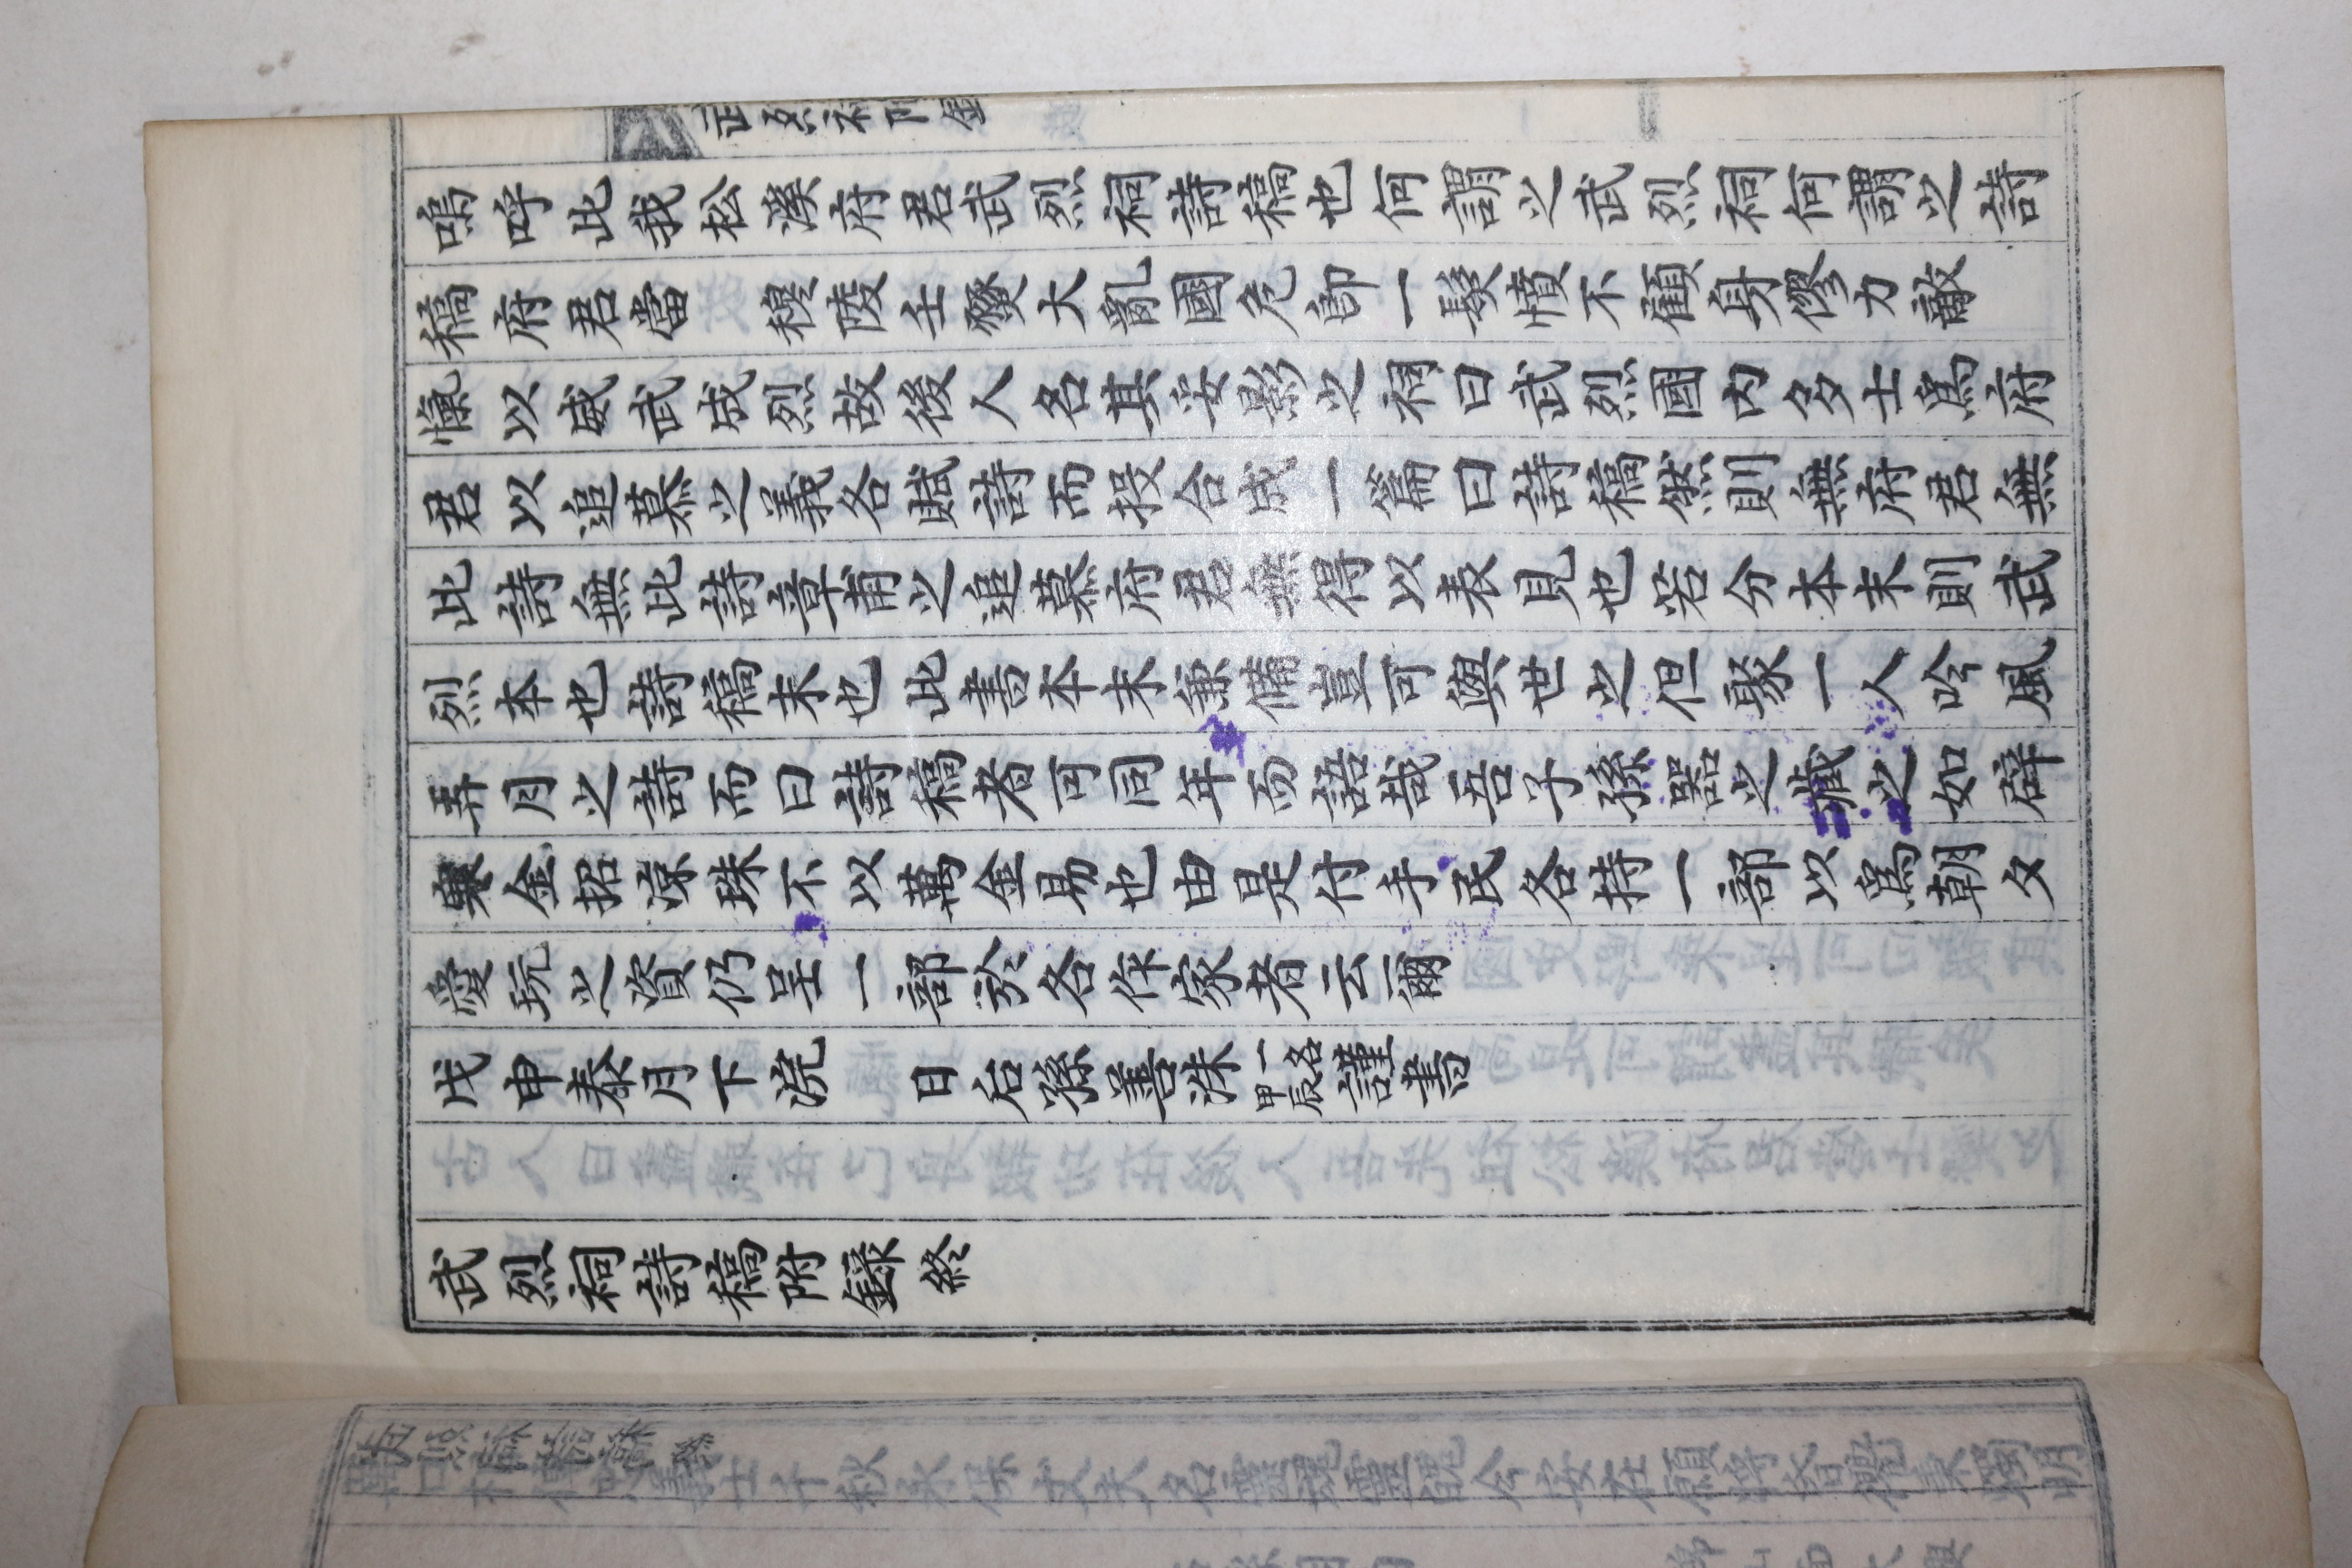 武烈祠附錄
嗚呼此我松溪府君武烈祠詩稿也何謂之武烈祠何謂之詩
稿府君當 穆陵壬癸大亂國危即一髮憤不顧身僇力敵
愾以威武成烈故後人名其妥影之祠曰武烈國內多士爲府
君以追慕之義各賦詩而投合成一篇曰詩稿然則無府君無
此詩無此詩章甫之追慕府君無得以表見也若分本末則武
烈本也詩稿末也此書本末兼備豈可與世之但聚一人吟風
弄月之詩而曰詩稿者可同年而語哉吾子孫器之藏之如辟
寒金招涼珠不以萬金易也由是付手民各持一部以爲朝夕
愛玩之資仍呈一部於各作家者云爾
戊申泰月下浣 日后孫善洙一名甲辰謹書
武烈祠詩稿附錄終